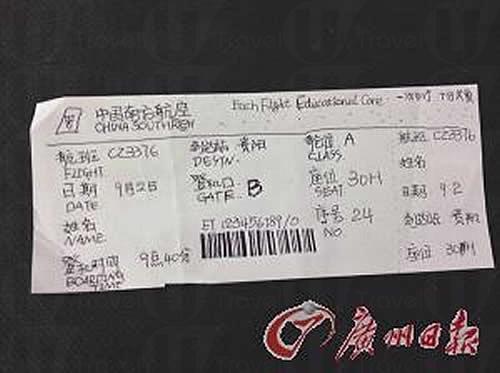 中国南方航空
CHINA SOUTHREN
Each Flight Educational Care
航班 CZ3376
FLIGHT
日期 9月2日
DATE
姓名
NAME
登机时间 9点40分
BOARDING
TIME
到达站 贵阳
DESTN.
登机口
GATE. B
ET 123456789/0
舱位 A
CLASS
座位 30H
SEAT
序号 24
NO
航班 CZ3376
姓名
日期 9.2
到达站 贵阳
座位 30H
廣州日報